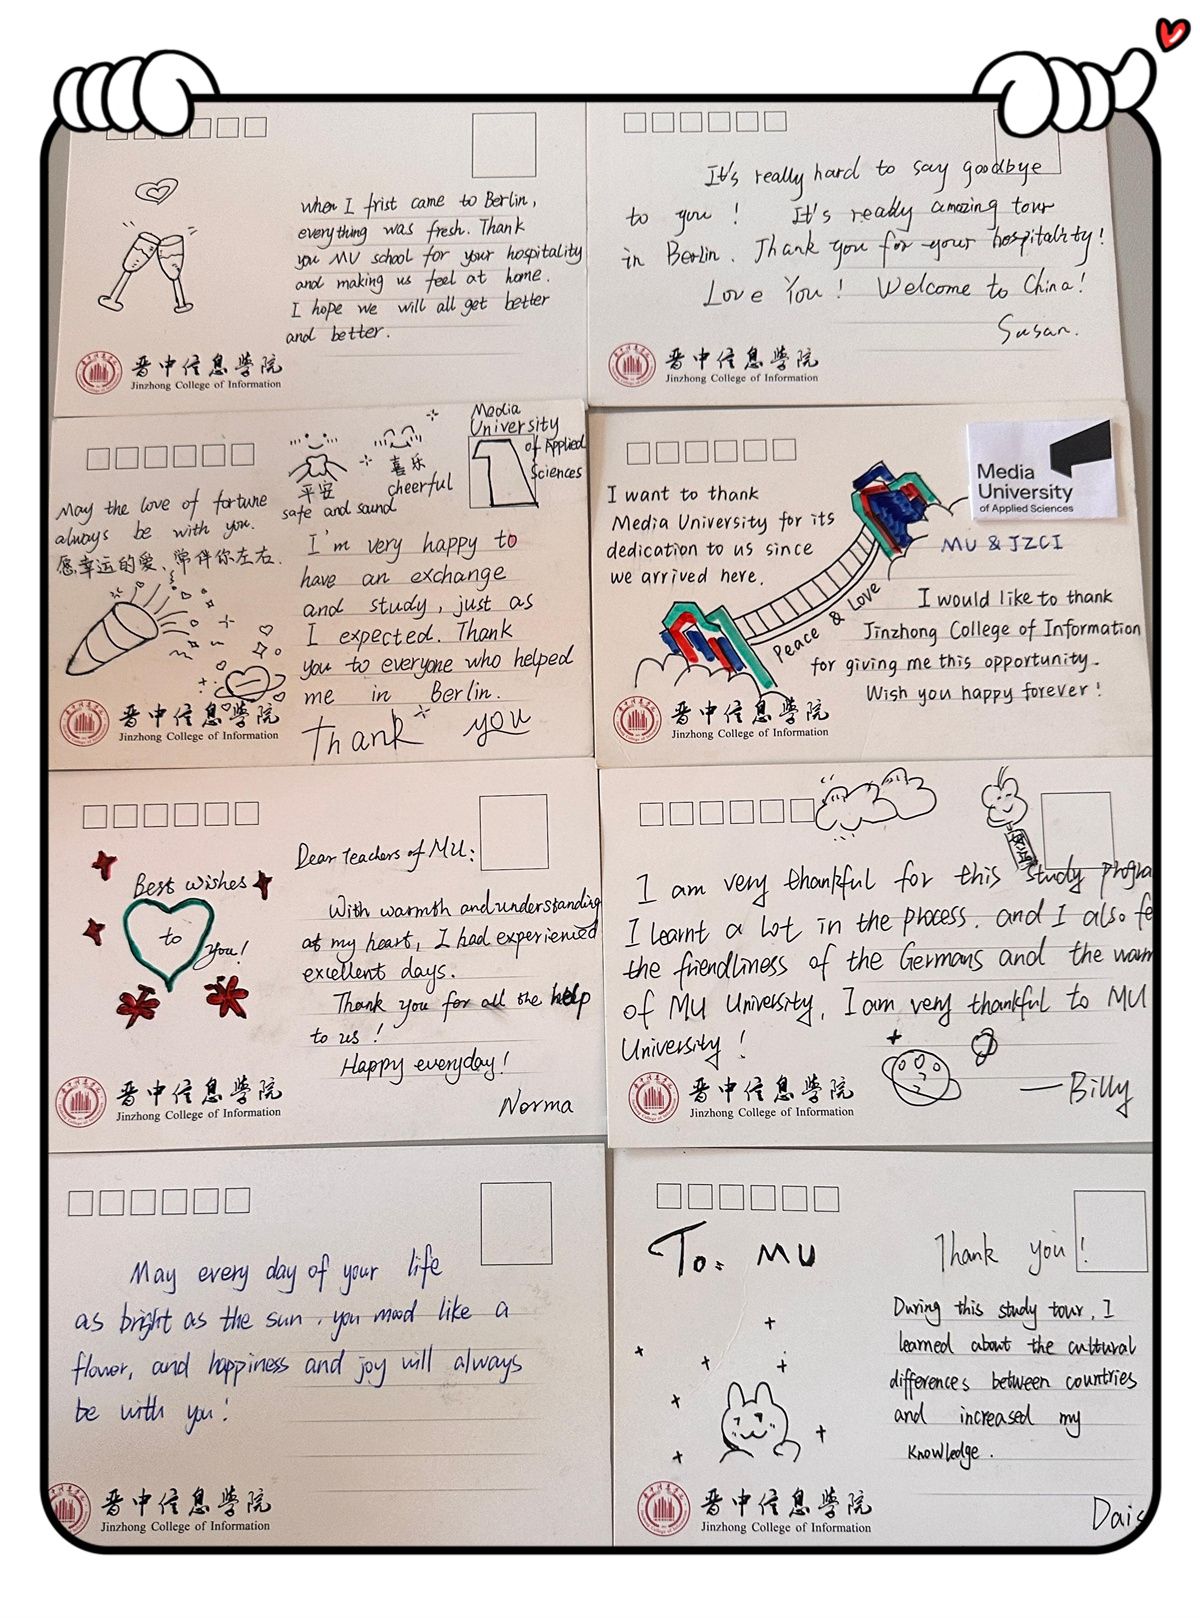 when I frist came to Berlin,
everything was fresh. Thank
you MU school for your hospitality
and making us feel at home.
I hope we will all get better
and better.
晋中信息学院
Jinzhong College of Information
It's really hard to say goodbye
to you! It's really amazing tour
in Berlin. Thank you for your hospitality!
Love You! Welcome to China!
Susan.
晋中信息学院
Jinzhong College of Information
Media
University
of Applied
Sciences
平安
喜乐
cheerful
safe and sound
May the love of fortune
always be with you.
愿幸运的爱、常伴你左右.
I'm very happy to
have an exchange
and study, just as
I expected. Thank
you to everyone who helped
me in Berlin.
Thank you
晋中信息学院
Jinzhong College of Information
Media
University
of Applied Sciences
I want to thank
Media University for its
dedication to us since
we arrived here.
MU & JZCI
Peace & Love
I would like to thank
Jinzhong College of Information
for giving me this opportunity.
Wish you happy forever!
晋中信息学院
Jinzhong College of Information
Best wishes
to
you!
Dear teachers of MU:
With warmth and understanding
at my heart, I had experienced
excellent days.
Thank you for all the help
to us!
Happy everyday!
Norma
晋中信息学院
Jinzhong College of Information
I am very thankful for this study progra
I learnt a lot in the process. and I also fe
the friendliness of the Germans and the warm
of MU University, I am very thankful to MU
University!
—Billy
晋中信息学院
Jinzhong College of Information
May every day of your life
as bright as the sun, you mood like a
flower, and happiness and joy will always
be with you!
晋中信息学院
Jinzhong College of Information
To: MU
Thank you!
During this study tour, I
learned about the cultural
differences between countries
and increased my
knowledge.
Dais
晋中信息学院
Jinzhong College of Information